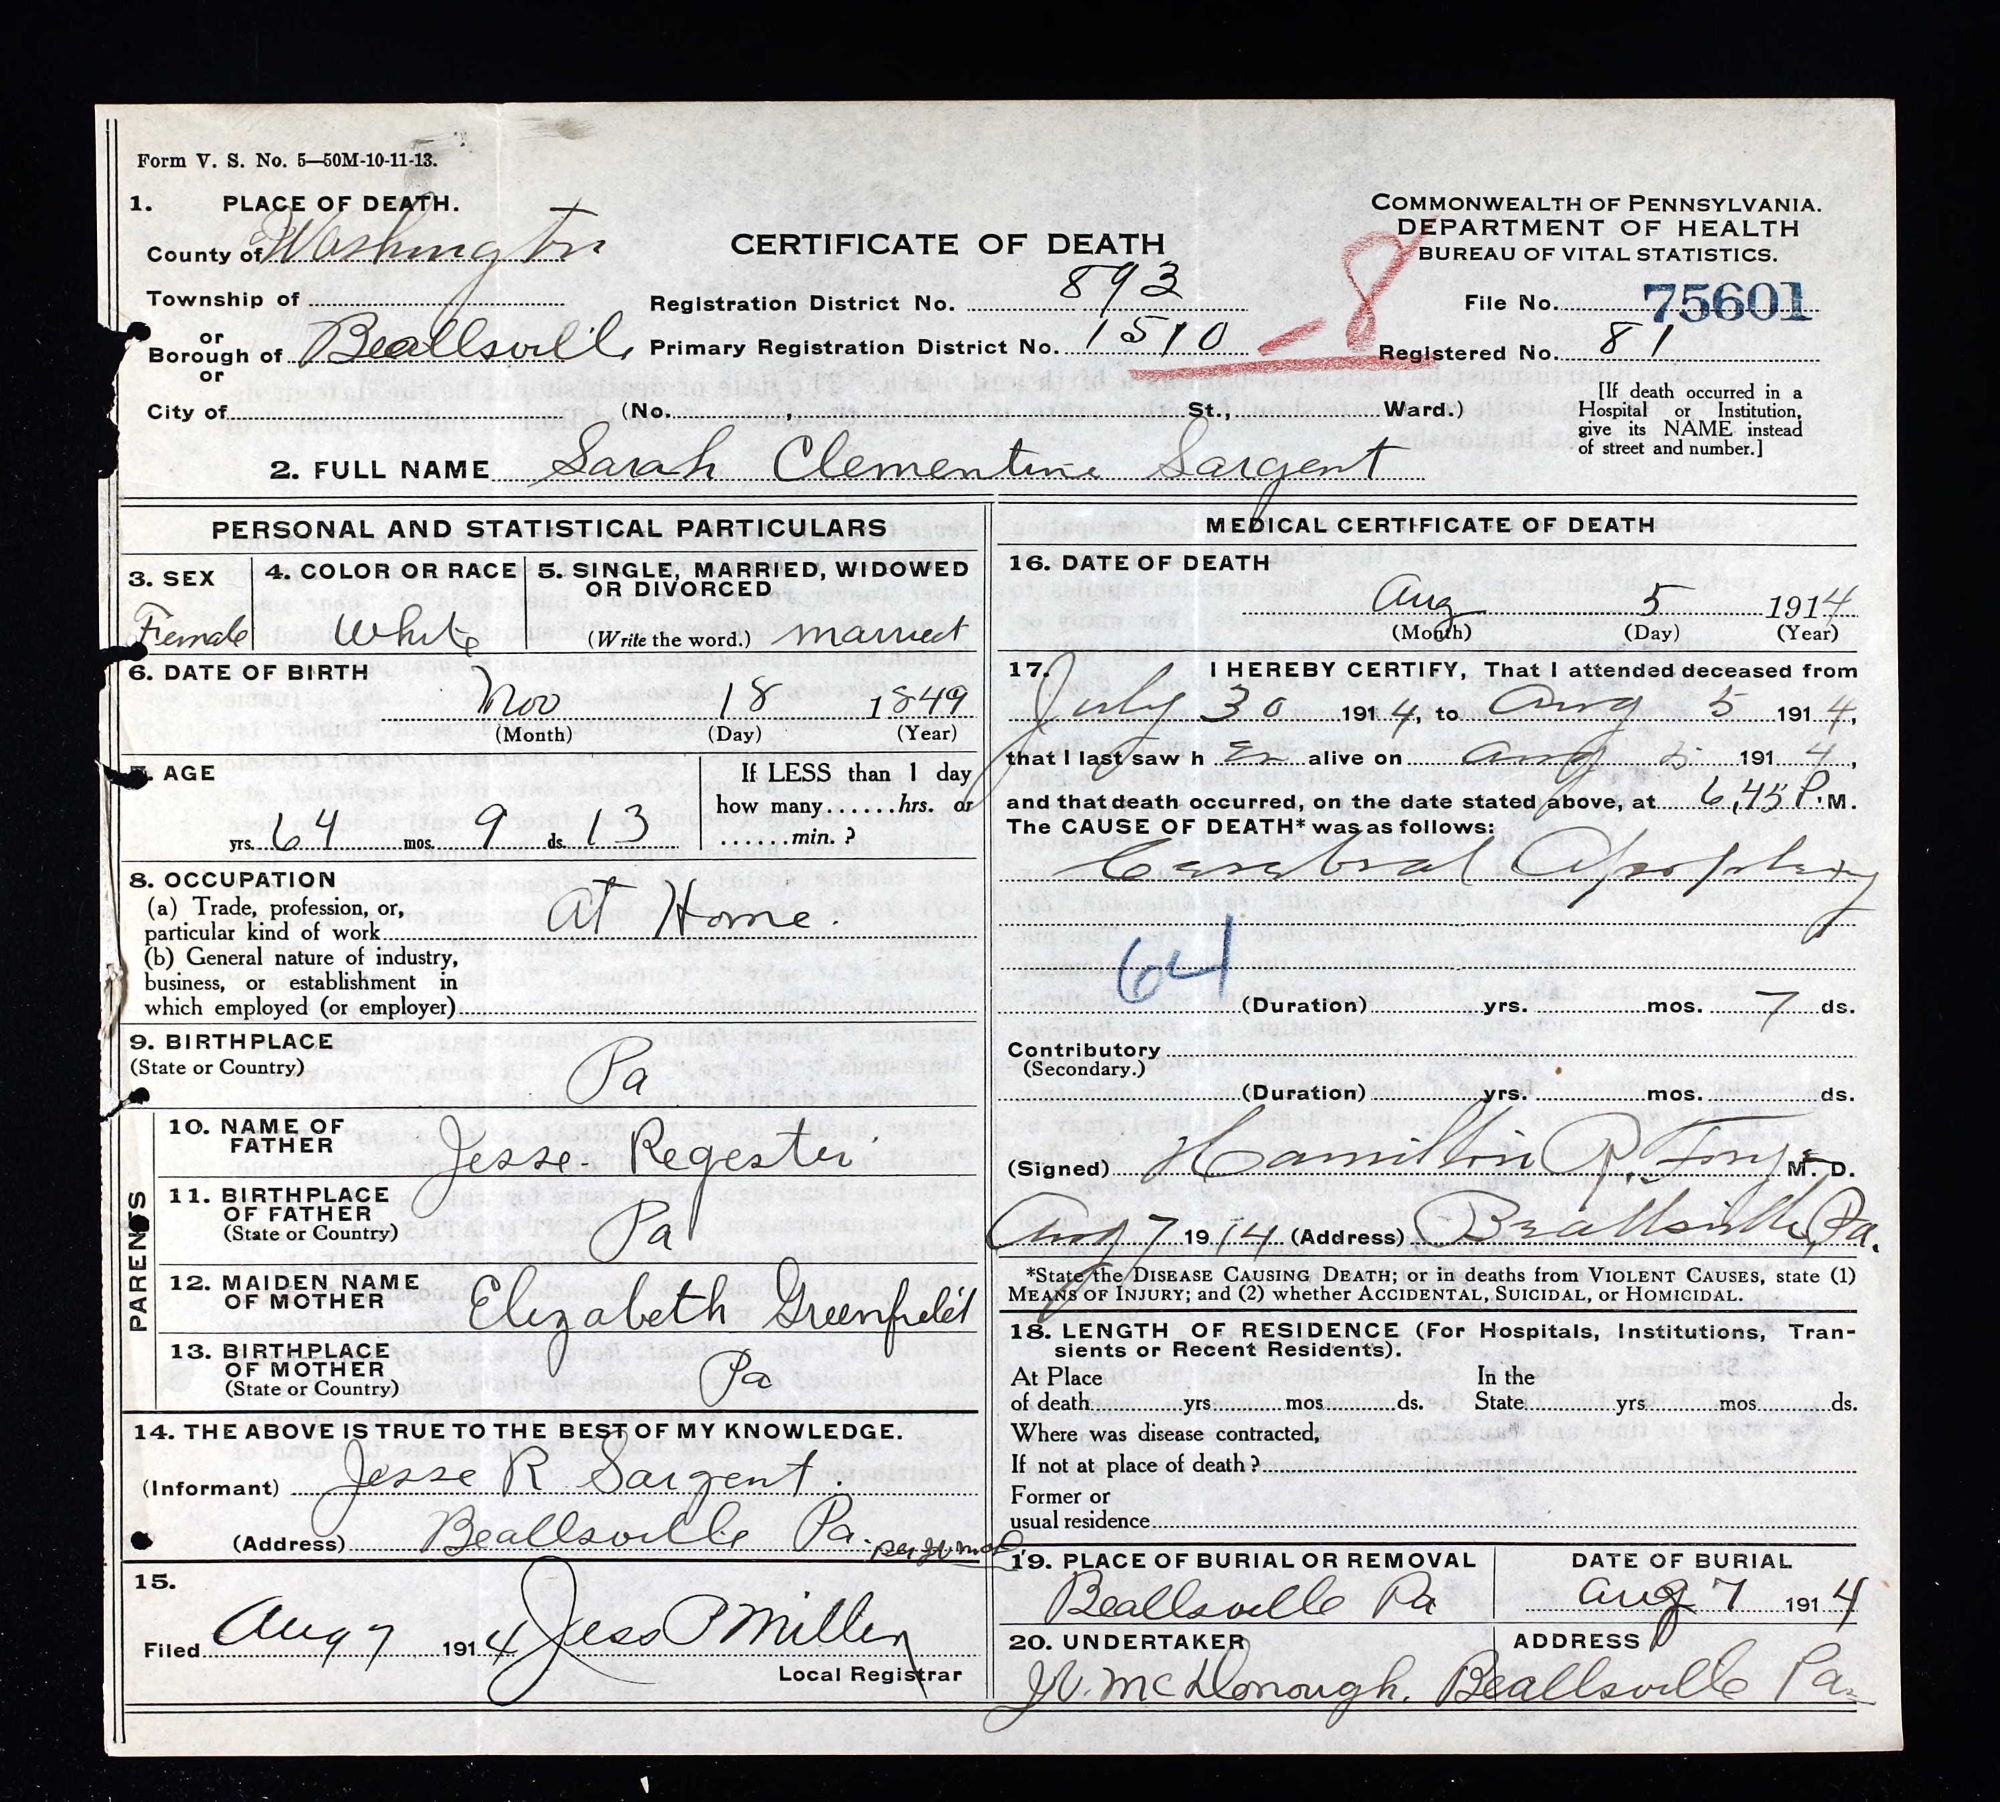 Form V. S. No. 5—50M-10-11-13.
1. PLACE OF DEATH.
County of Washington
Township of
or
Borough of Beallsville
or
City of (No. , St., Ward.)
CERTIFICATE OF DEATH
Registration District No. 893
Primary Registration District No. 1510
8
COMMONWEALTH OF PENNSYLVANIA.
DEPARTMENT OF HEALTH
BUREAU OF VITAL STATISTICS.
File No. 75601
Registered No. 81
[If death occurred in a
Hospital or Institution,
give its NAME instead
of street and number.]
2. FULL NAME Sarah Clementine Sargent
PERSONAL AND STATISTICAL PARTICULARS
3. SEX
Female
4. COLOR OR RACE
White
5. SINGLE, MARRIED, WIDOWED
OR DIVORCED
(Write the word.) married
6. DATE OF BIRTH
Nov 18 1849
(Month) (Day) (Year)
7. AGE
yrs. 64 mos. 9 ds. 13
If LESS than 1 day
how many......hrs. or
......min. ?
8. OCCUPATION
(a) Trade, profession, or,
particular kind of work At Home.
(b) General nature of industry,
business, or establishment in
which employed (or employer)
9. BIRTHPLACE
(State or Country) Pa
PARENTS
10. NAME OF
FATHER Jesse Regester
11. BIRTHPLACE
OF FATHER
(State or Country) Pa
12. MAIDEN NAME
OF MOTHER Elizabeth Greenfield
13. BIRTHPLACE
OF MOTHER
(State or Country) Pa
14. THE ABOVE IS TRUE TO THE BEST OF MY KNOWLEDGE.
(Informant) Jesse R Sargent.
(Address) Beallsville Pa.
15.
Filed Aug 7 1914 Jess P Miller
Local Registrar
MEDICAL CERTIFICATE OF DEATH
16. DATE OF DEATH
Aug 5 1914
(Month) (Day) (Year)
17. I HEREBY CERTIFY, That I attended deceased from
July 30 1914, to Aug 5 1914,
that I last saw h er alive on Aug 5 1914,
and that death occurred, on the date stated above, at 6,45 P.M.
The CAUSE OF DEATH* was as follows:
Cerebral Apoplexy
64
(Duration) yrs. mos. 7 ds.
Contributory
(Secondary.)
(Duration) yrs. mos. ds.
(Signed) Hamilton P. M. D.
Aug 7 1914 (Address) Beallsville, Pa.
*State the DISEASE CAUSING DEATH; or in deaths from VIOLENT CAUSES, state (1)
MEANS OF INJURY; and (2) whether ACCIDENTAL, SUICIDAL, or HOMICIDAL.
18. LENGTH OF RESIDENCE (For Hospitals, Institutions, Tran-
sients or Recent Residents).
At Place In the
of death yrs. mos. ds. State yrs. mos. ds.
Where was disease contracted,
If not at place of death?
Former or
usual residence
19. PLACE OF BURIAL OR REMOVAL
Beallsville Pa
DATE OF BURIAL
Aug 7 1914
20. UNDERTAKER
J V. McDonough.
ADDRESS
Beallsville Pa